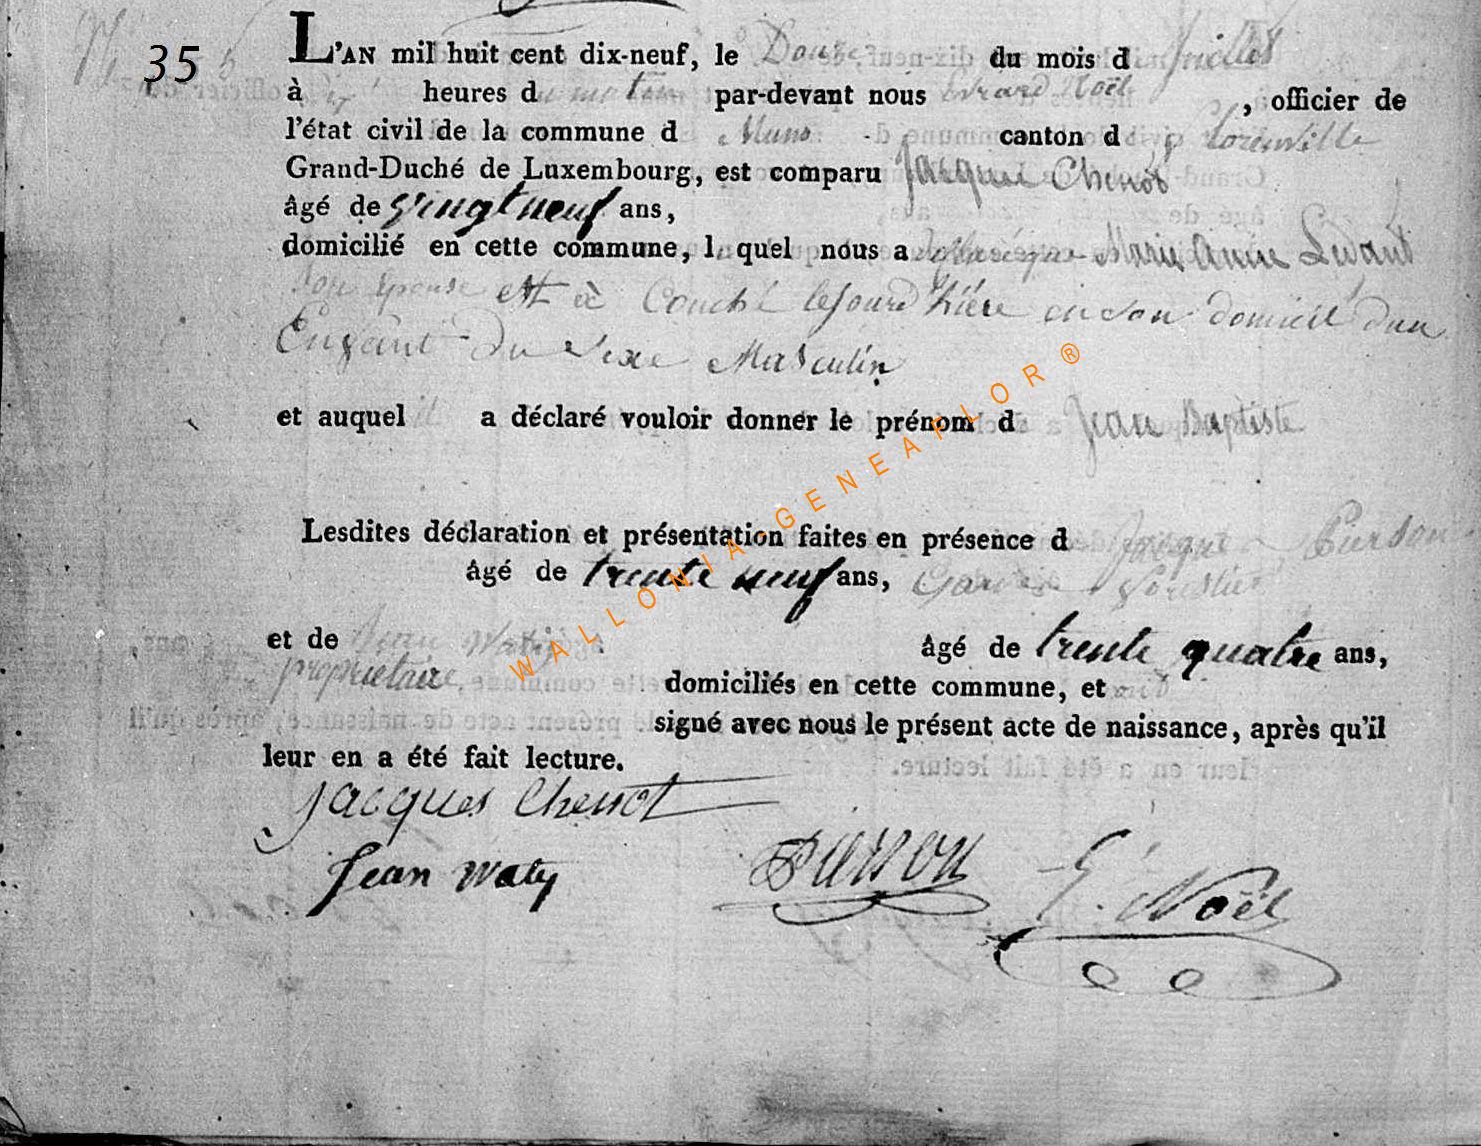 35
L'AN mil huit cent dix-neuf, le Douze du mois d juillet
à heures d u matin par-devant nous Evrard Noël, officier de
l'état civil de la commune d e Muno canton d e Florenville
Grand-Duché de Luxembourg, est comparu Jacque Chenot
âgé de vingt neuf ans,
domicilié en cette commune, l quel nous a Marie anne Ledant
son épouse est à Couché le jourd'hière en son domicile d'un
Enfant du Sexe Masculin
et auquel il a déclaré vouloir donner le prénom d Jean Baptiste
Lesdites déclaration et présentation faites en présence d Jacque Pierson
âgé de trente neuf ans, Garde forestier
et de Waty âgé de trente quatre ans,
propriétaire domiciliés en cette commune, et ont
signé avec nous le présent acte de naissance, après qu'il
leur en a été fait lecture.
Jacques Chenot
Jean Waty Pierson E. Noël
WALLONIA-GENEAFLOR®